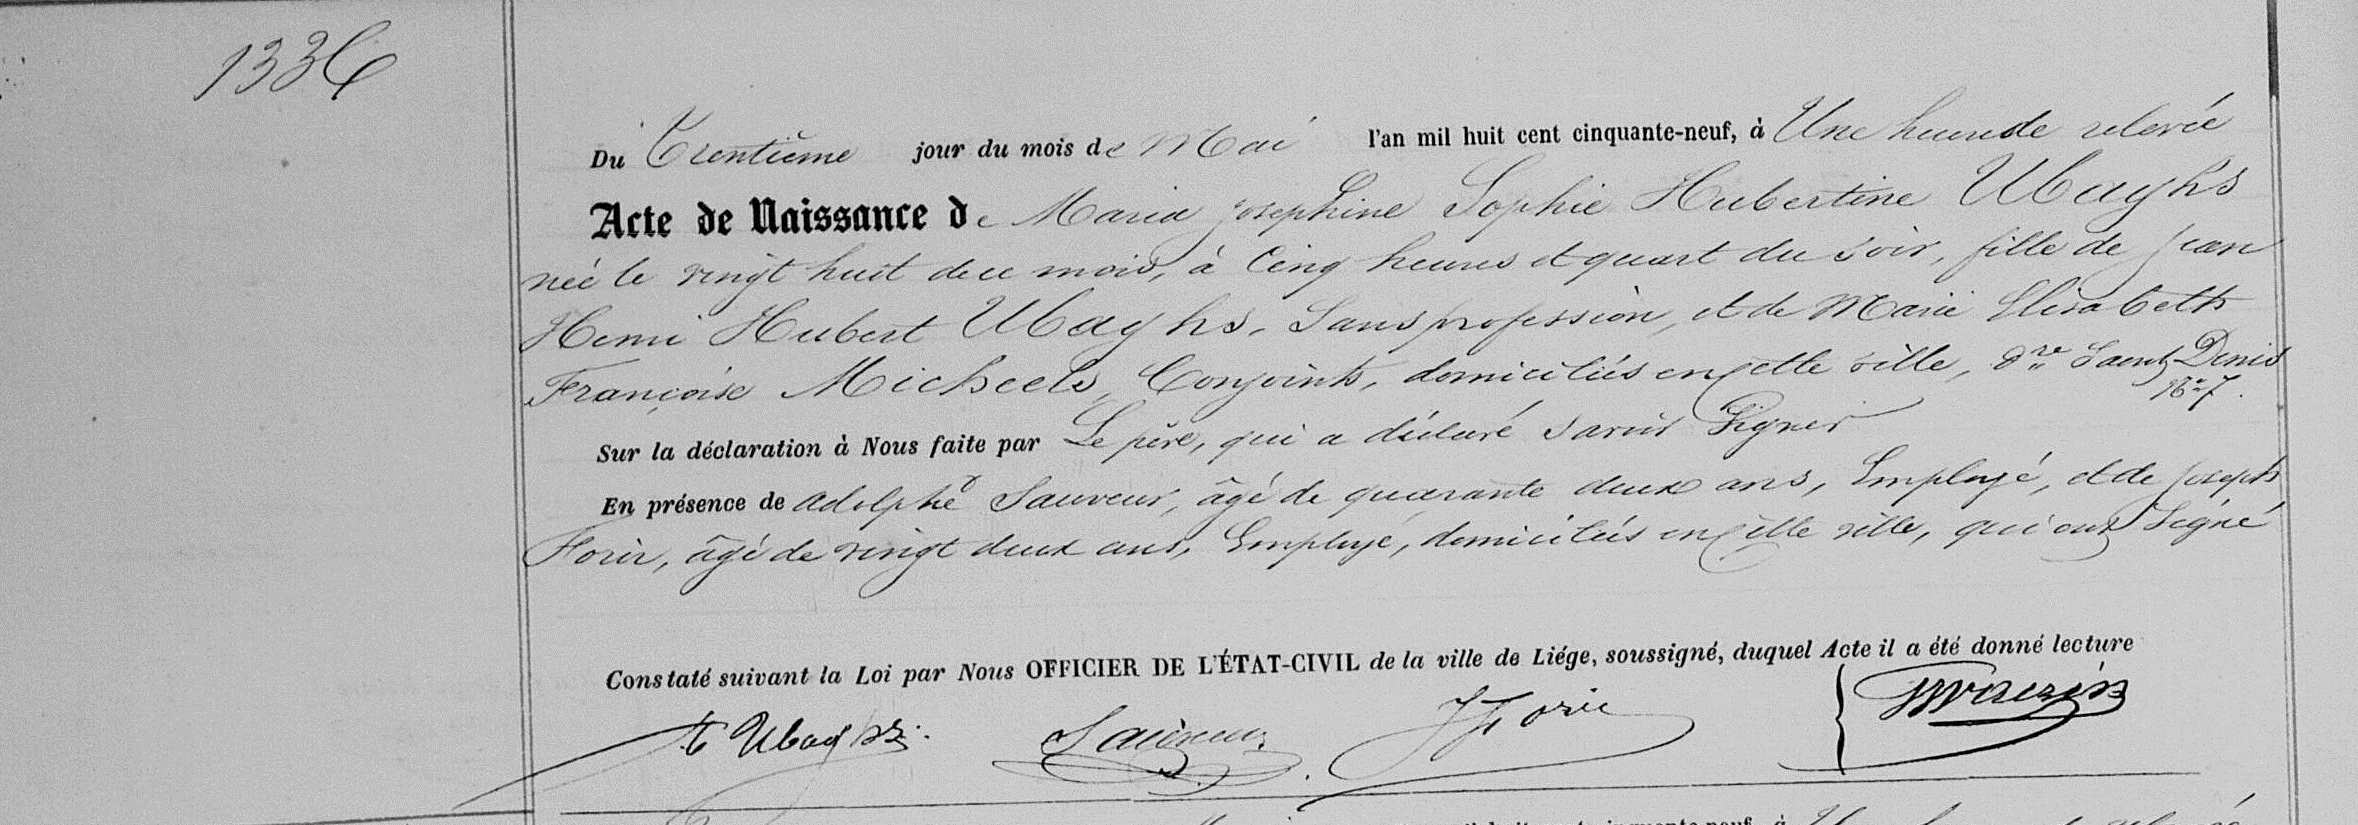 1336
Du Trentième jour du mois de Mai l'an mil huit cent cinquante-neuf, à Une heure de relevée
Acte de Naissance de Maria Josephine Sophie Hubertine Ubaghs
née le vingt huit de ce mois, à Cinq heures et quart du soir, fille de Jean
Henri Hubert Ubaghs, Sans profession, et de Marie Elisabeth
Françoise Micheels, Conjoints, domiciliés en cette ville, Saint Denis
N° 7.
Sur la déclaration à Nous faite par Le père, qui a déclaré savoir Signer
En présence de Adolphe Sauveur, âgé de quarante deux ans, Employé, et de Joseph
Forir, âgé de vingt deux ans, Employé, domiciliés en cette ville, qui ont Signé
Constaté suivant la Loi par Nous OFFICIER DE L'ÉTAT-CIVIL de la ville de Liége, soussigné, duquel Acte il a été donné lecture
Ubaghs. Sauveur J Forir